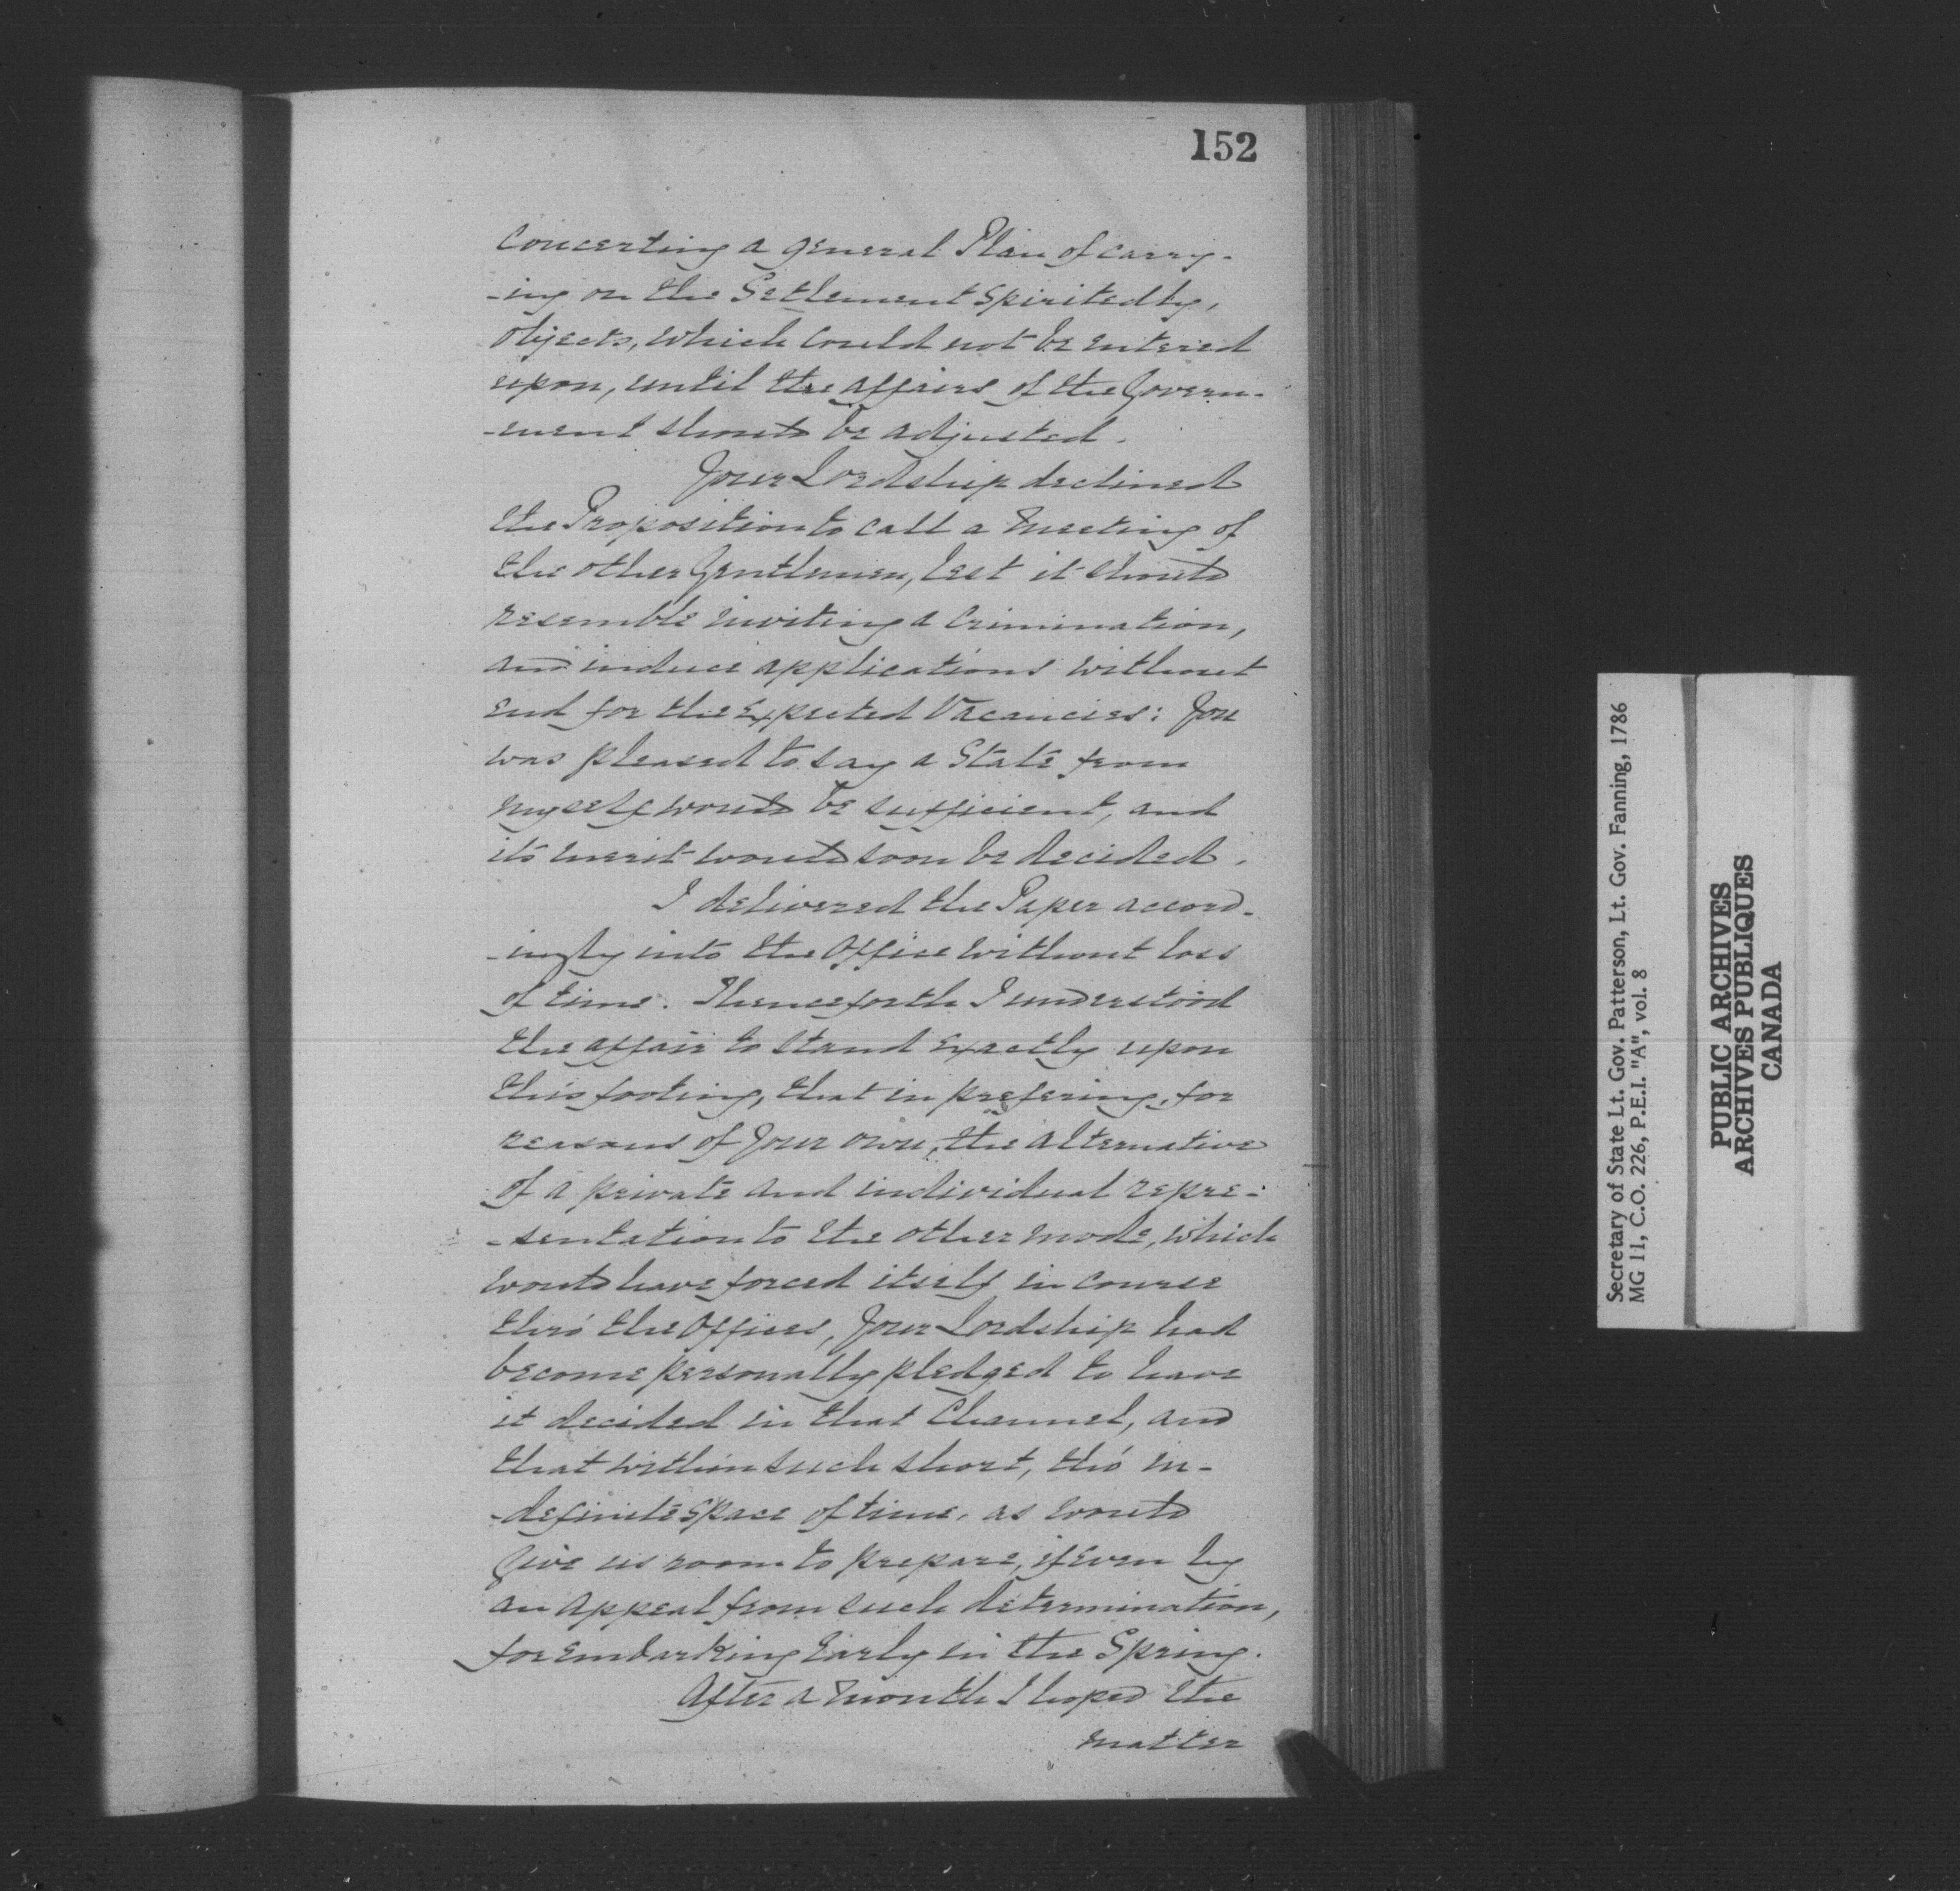 152
concerting a general Plan of carry-
-ing on the Settlement Spiritedly,
objects, which could not be entered
upon, until the affairs of the Govern-
-ment should be adjusted.
Your Lordship declined
the Proposition to call a meeting of
the other Gentlemen, lest it should
resemble inviting a Crimination,
and induce applications without
end for the Expected Vacancies: You
was pleased to say a State from
myself would be sufficient, and
its merit would soon be decided.
I delivered the Paper accord-
-ingly into the Office without loss
of time. Thenceforth I understood
the affair to stand Exactly upon
this footing, that in prefering, for
reasons of Your own, the alternative
of a private and individual repre-
-sentation to the other mode, which
would have forced itself in course
thro' the Offices, Your Lordship had
become personally pledged to have
it decided in that Channel, and
that within such short, tho' in-
-definite space of time, as would
give us room to prepare, if even by
an appeal from such determination,
for Embarking Early in the Spring.
After a month I hoped the
matter
Secretary of State Lt. Gov. Patterson, Lt. Gov. Fanning, 1786
MG 11, C.O. 226, P.E.I. "A", vol. 8
PUBLIC ARCHIVES
ARCHIVES PUBLIQUES
CANADA